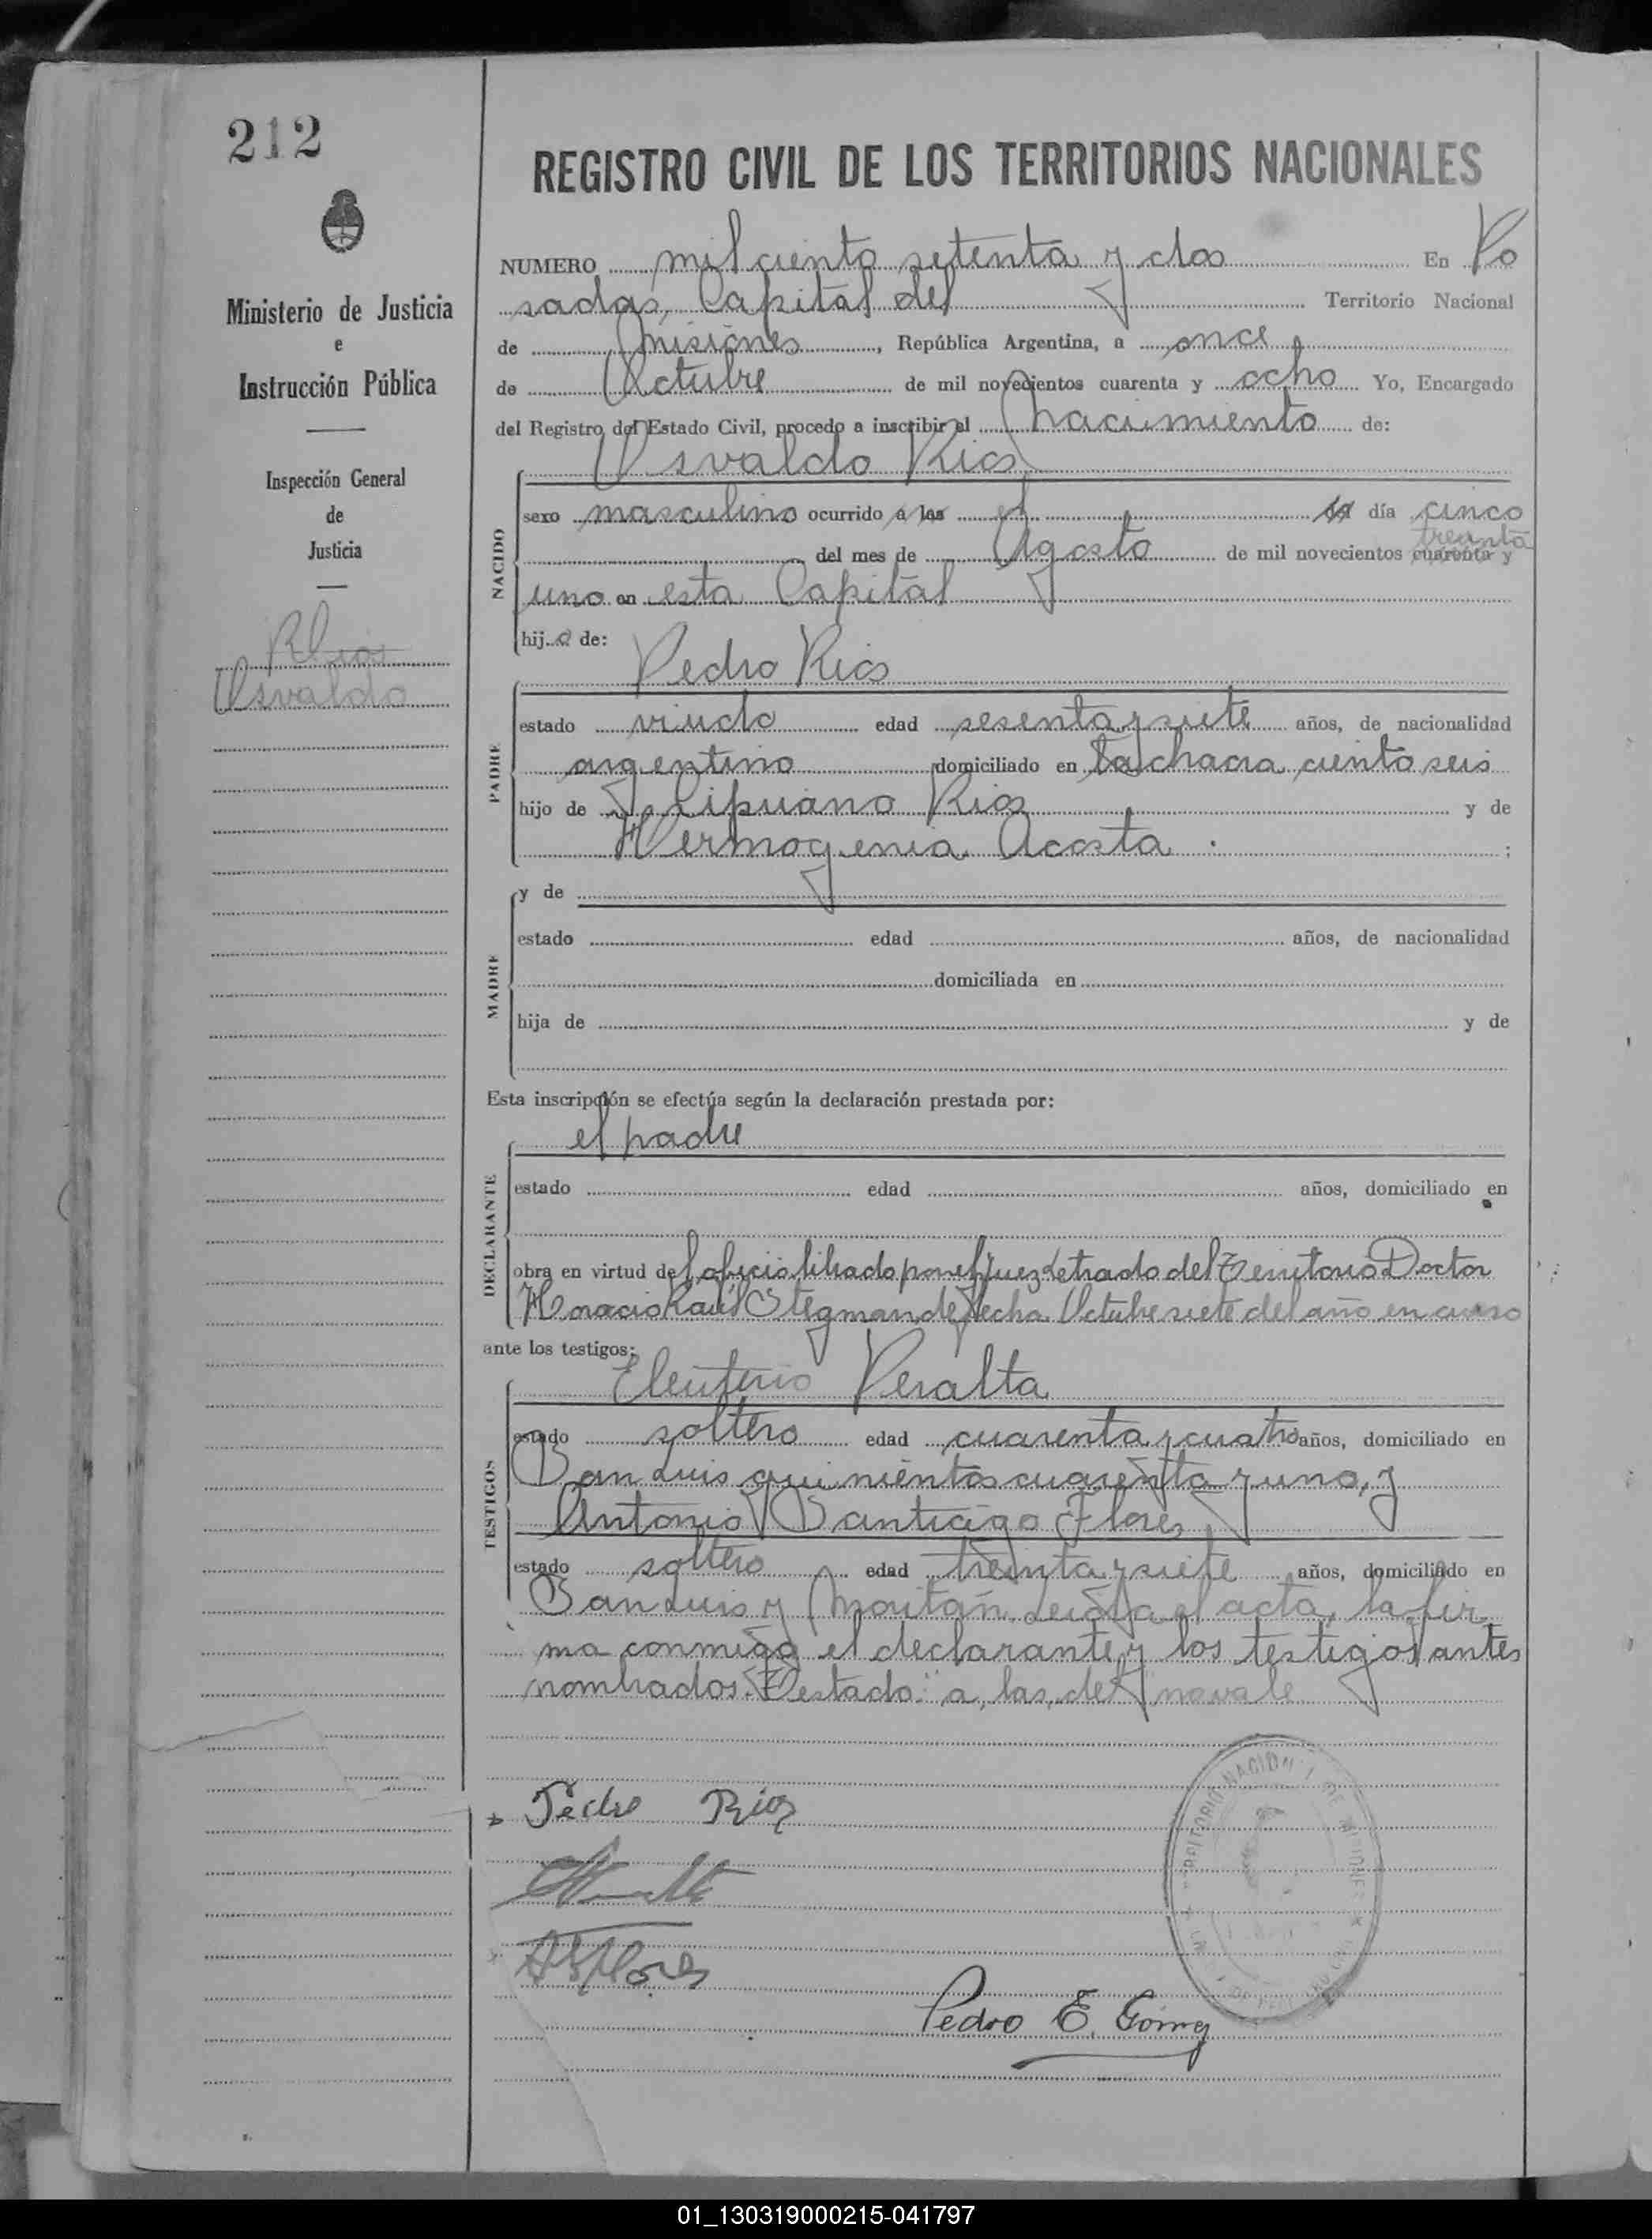 212
Ministerio de Justicia
e
Instrucción Pública
Inspección General
de
Justicia
Osvaldo
REGISTRO CIVIL DE LOS TERRITORIOS NACIONALES
NUMERO mil ciento setenta y dos En Po
sadas, Capital del Territorio Nacional
de Misiones, República Argentina, a once
de Octubre de mil novecientos cuarenta y ocho Yo, Encargado
del Registro del Estado Civil, procedo a inscribir el nacimiento de:
Osvaldo Rios
NACIDO
sexo masculino ocurrido a las el día cinco
treinta
del mes de Agosto de mil novecientos cuarenta y
uno en esta Capital
hijo de:
PADRE
Pedro Rios
estado viudo edad sesenta y siete años, de nacionalidad
argentino domiciliado en la chacra ciento seis
hijo de Rios y de
Hermogenia Acosta ;
MADRE
y de
estado edad años, de nacionalidad
domiciliada en
hija de y de
Esta inscripción se efectúa según la declaración prestada por:
DECLARANTE
el padre
estado edad años, domiciliado en
obra en virtud del oficio librado por el Juez Letrado del Territorio Doctor
Horacio Raúl Stegman de fecha Octubre siete del año en curso
ante los testigos:
TESTIGOS
Eleuterio Peralta
estado soltero edad cuarenta y cuatro años, domiciliado en
San Luis quinientos cuarenta y uno, y
Antonio Santiago Flores
estado soltero edad treinta y siete años, domiciliado en
San Luis y Moritán. Leida el acta, la fir
ma conmigo el declarante y los testigos antes
nombrados. Testado: "a, las, de" no vale
Pedro Rios
ASFlores
Pedro E. Gómez
01_130319000215-041797